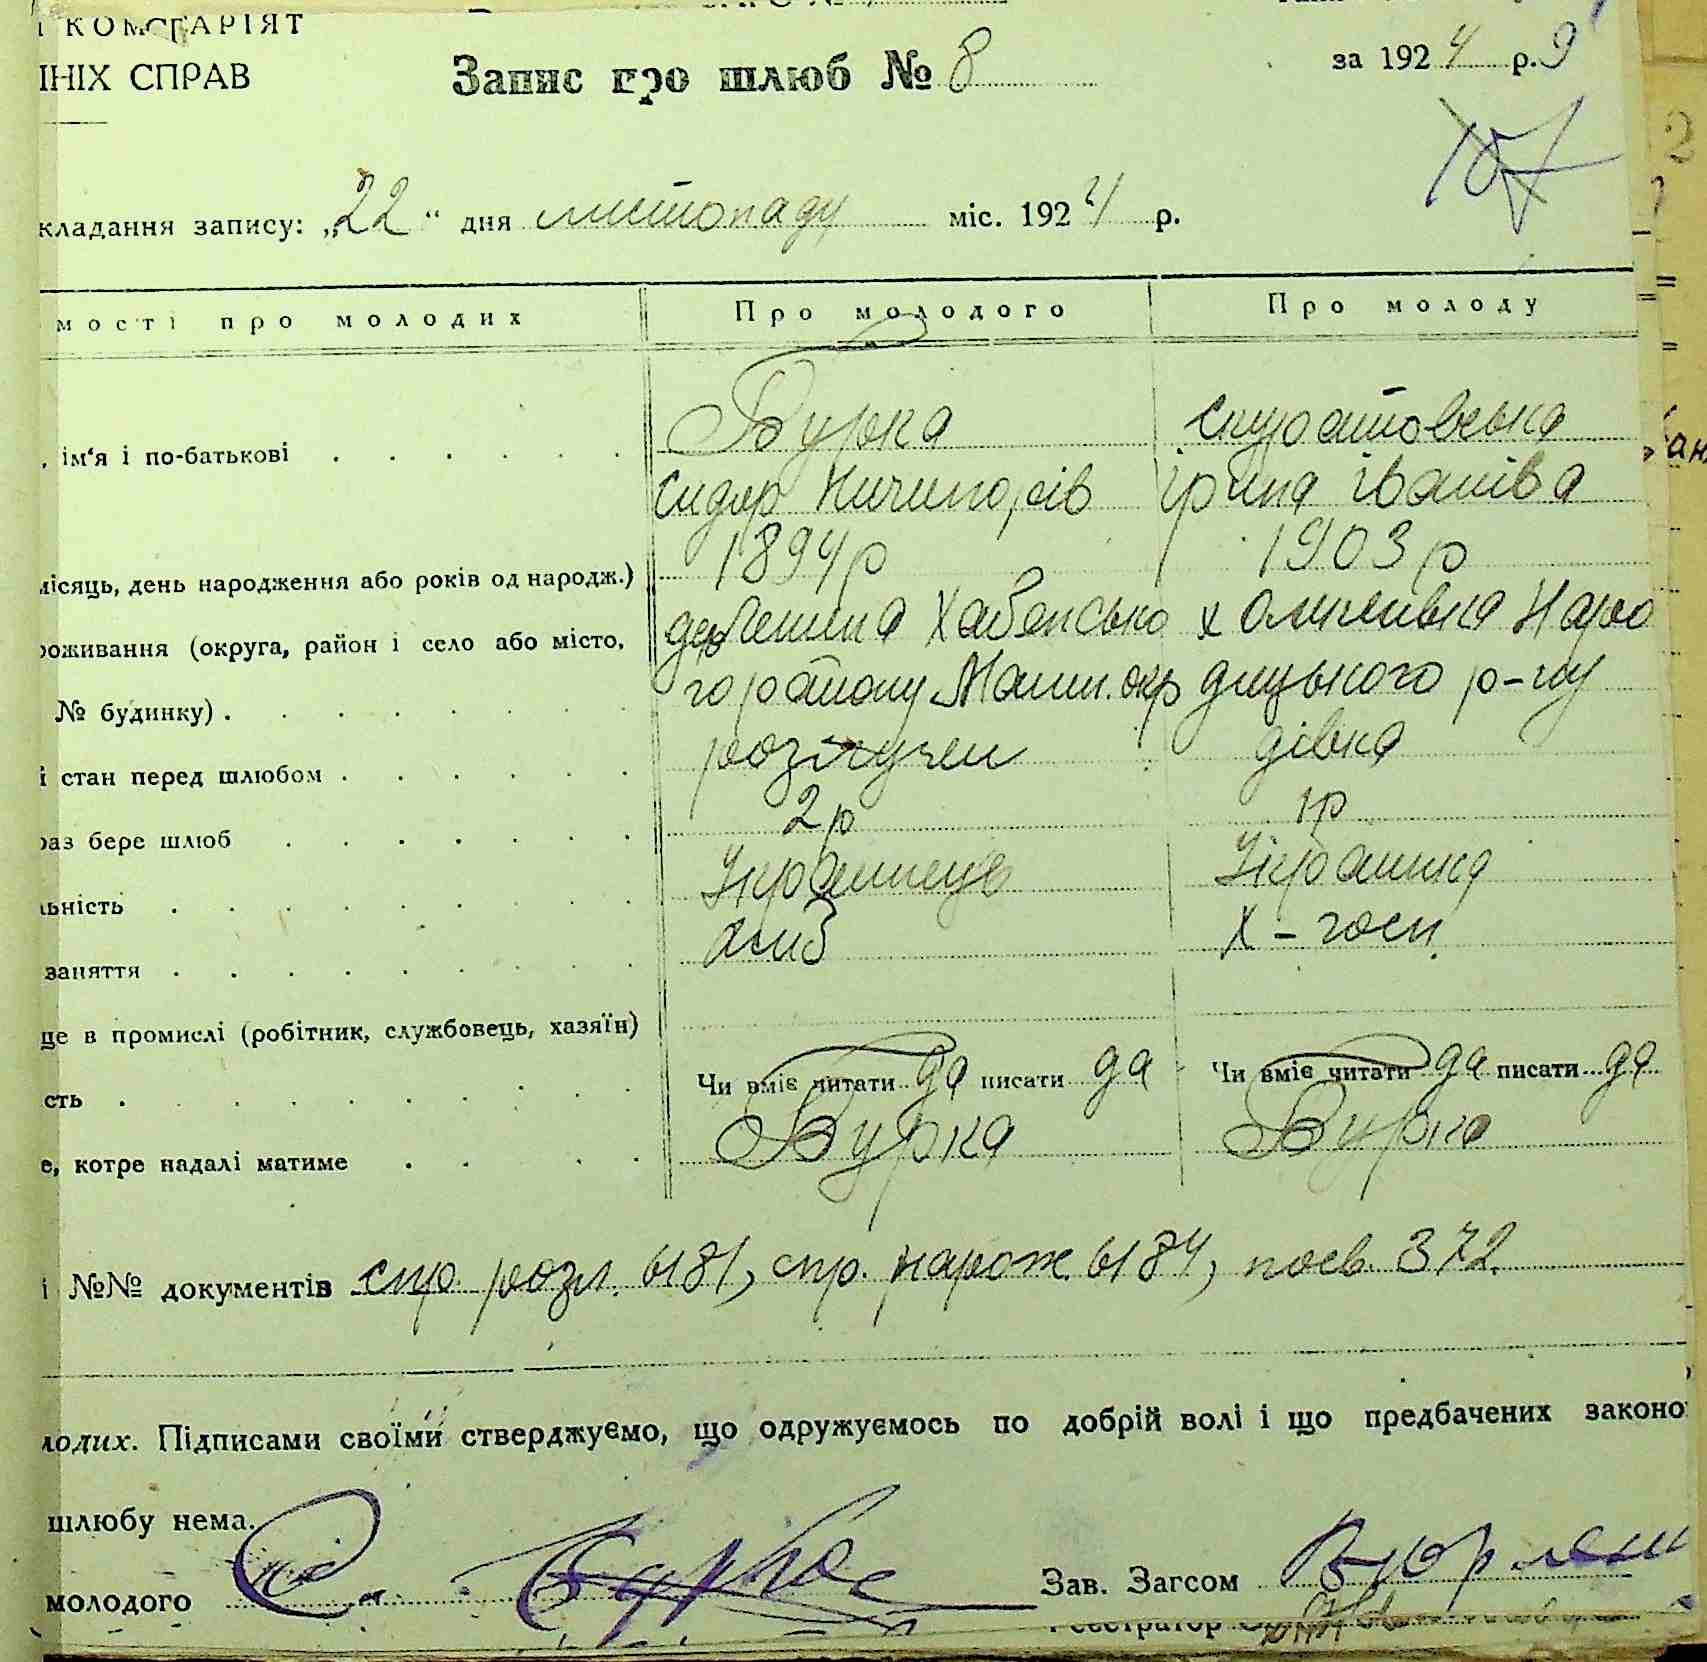 КОМІСАРІЯТ
ІНІХ СПРАВ
Запис про шлюб № 8
за 1924 р. 9
107
кладання запису: „22“ дня листопаду міс. 1924 р.
мості про молодих Про молодого Про молоду
Бурка Скуратовська
, ім'я і по-батькові
Сидор Ничипорів Ірина Іванівa
1894 р 1903 р
місяць, день народження або років од народж.)
Хабенсько х Олиževka Наро
роживання (округа, район і село або місто,
го району Мали. окр дицького р-ну
№ будинку)
розлучен дівка
і стан перед шлюбом
2 р 1 р
раз бере шлюб
Українець Українка
льність
х-госп
заняття
це в промислі (робітник, службовець, хазяїн)
Чи вміє читати да писати да Чи вміє читати да писати да
сть
Бурка Бурка
е, котре надалі матиме
і №№ документів спр. розл. 6181, спр. нарож. 6184, посв. 372.
лодих. Підписами своїми стверджуємо, що одружуємось по добрій волі і що предбачених законо
шлюбу нема.
молодого Бурка Зав. Загсом
Реєстратор